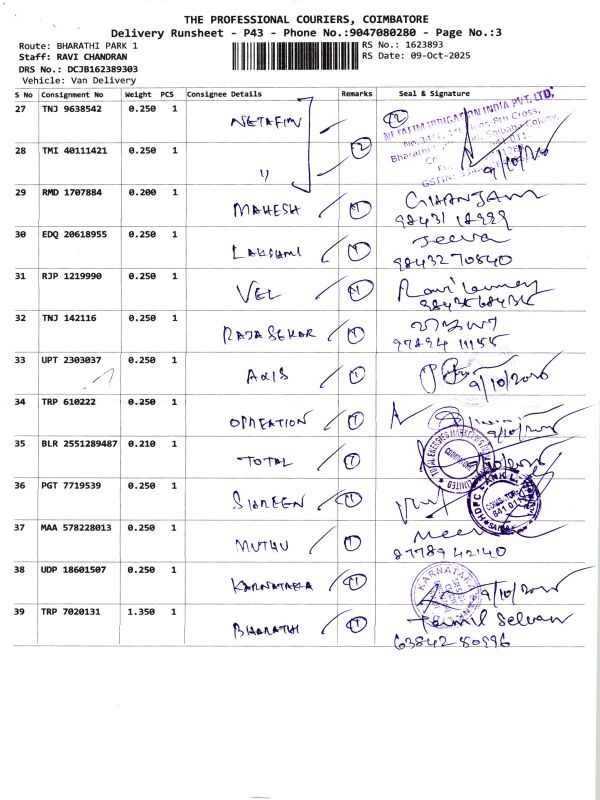 THE PROFESSIONAL COURIERS, COIMBATORE
Delivery Runsheet - P43 - Phone No.:9047080280 - Page No.:3
Route: BHARATHI PARK 1
RS No.: 1623893
Staff: RAVI CHANDRAN
RS Date: 09-Oct-2025
DRS No.: DCJB162389303
Vehicle: Van Delivery
S No Consignment No Weight PCS Consignee Details Remarks Seal & Signature
27 TNJ 9638542 0.250 1 NETAFIM 2
NETAFIM IRRIGATION INDIA PVT. LTD.
28 TMI 40111421 0.250 1 "
29 RMD 1707884 0.200 1 MAHESH 1
30 EDQ 20618955 0.250 1 LAKSHMI 1 Jeeva
98432 70840
31 RJP 1219990 0.250 1 VEL 1
32 TNJ 142116 0.250 1 RAJA SEKAR 1
97894 11155
33 UPT 2303037 0.250 1 AXIS 1
34 TRP 610222 0.250 1 OPREATION 1
35 BLR 2551289487 0.210 1 TOTAL 1
36 PGT 7719539 0.250 1 SHAREEN 1
HDFC BANK
37 MAA 578228013 0.250 1 MUTHU 1
87789 42140
38 UDP 18601507 0.250 1 KARNATAKA 1
KARNATAKA BANK
39 TRP 7020131 1.350 1 BHARATHI 1 Tamil Selvan
63842 80996